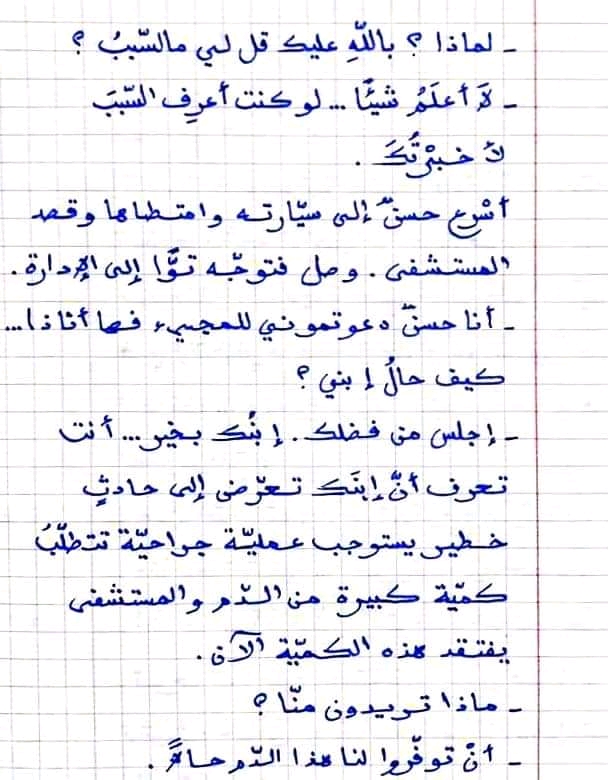 - لماذا ؟ باللّهِ عليك قل لي مالسّببُ ؟
- لاَ أعلَمُ شيئًا... لو كنت أعرِف السّببَ
لأخبرْتُكَ .
أسْرع حسنٌ إلى سيّارته وامتطاها وقصد
المستشفى . وصل فتوجّه توًّا إلى الإدارة .
- أنا حسنٌ دعوتموني للمجيء فها أنا ذا...
كيف حالُ إبني ؟
- إجلس من فضلك . إبنُك بخير... أنت
تعرف أنَّ إبنَك تعرّض إلى حادثٍ
خطير يستوجب عمليّة جراحيّة تتطلّبُ
كميّة كبيرة من الدّم والمستشفى
يفتقد هذه الكميّة الآن .
- ماذا تريدون منّا ؟
- أنْ توفّروا لنا هذا الدّم حالاً .